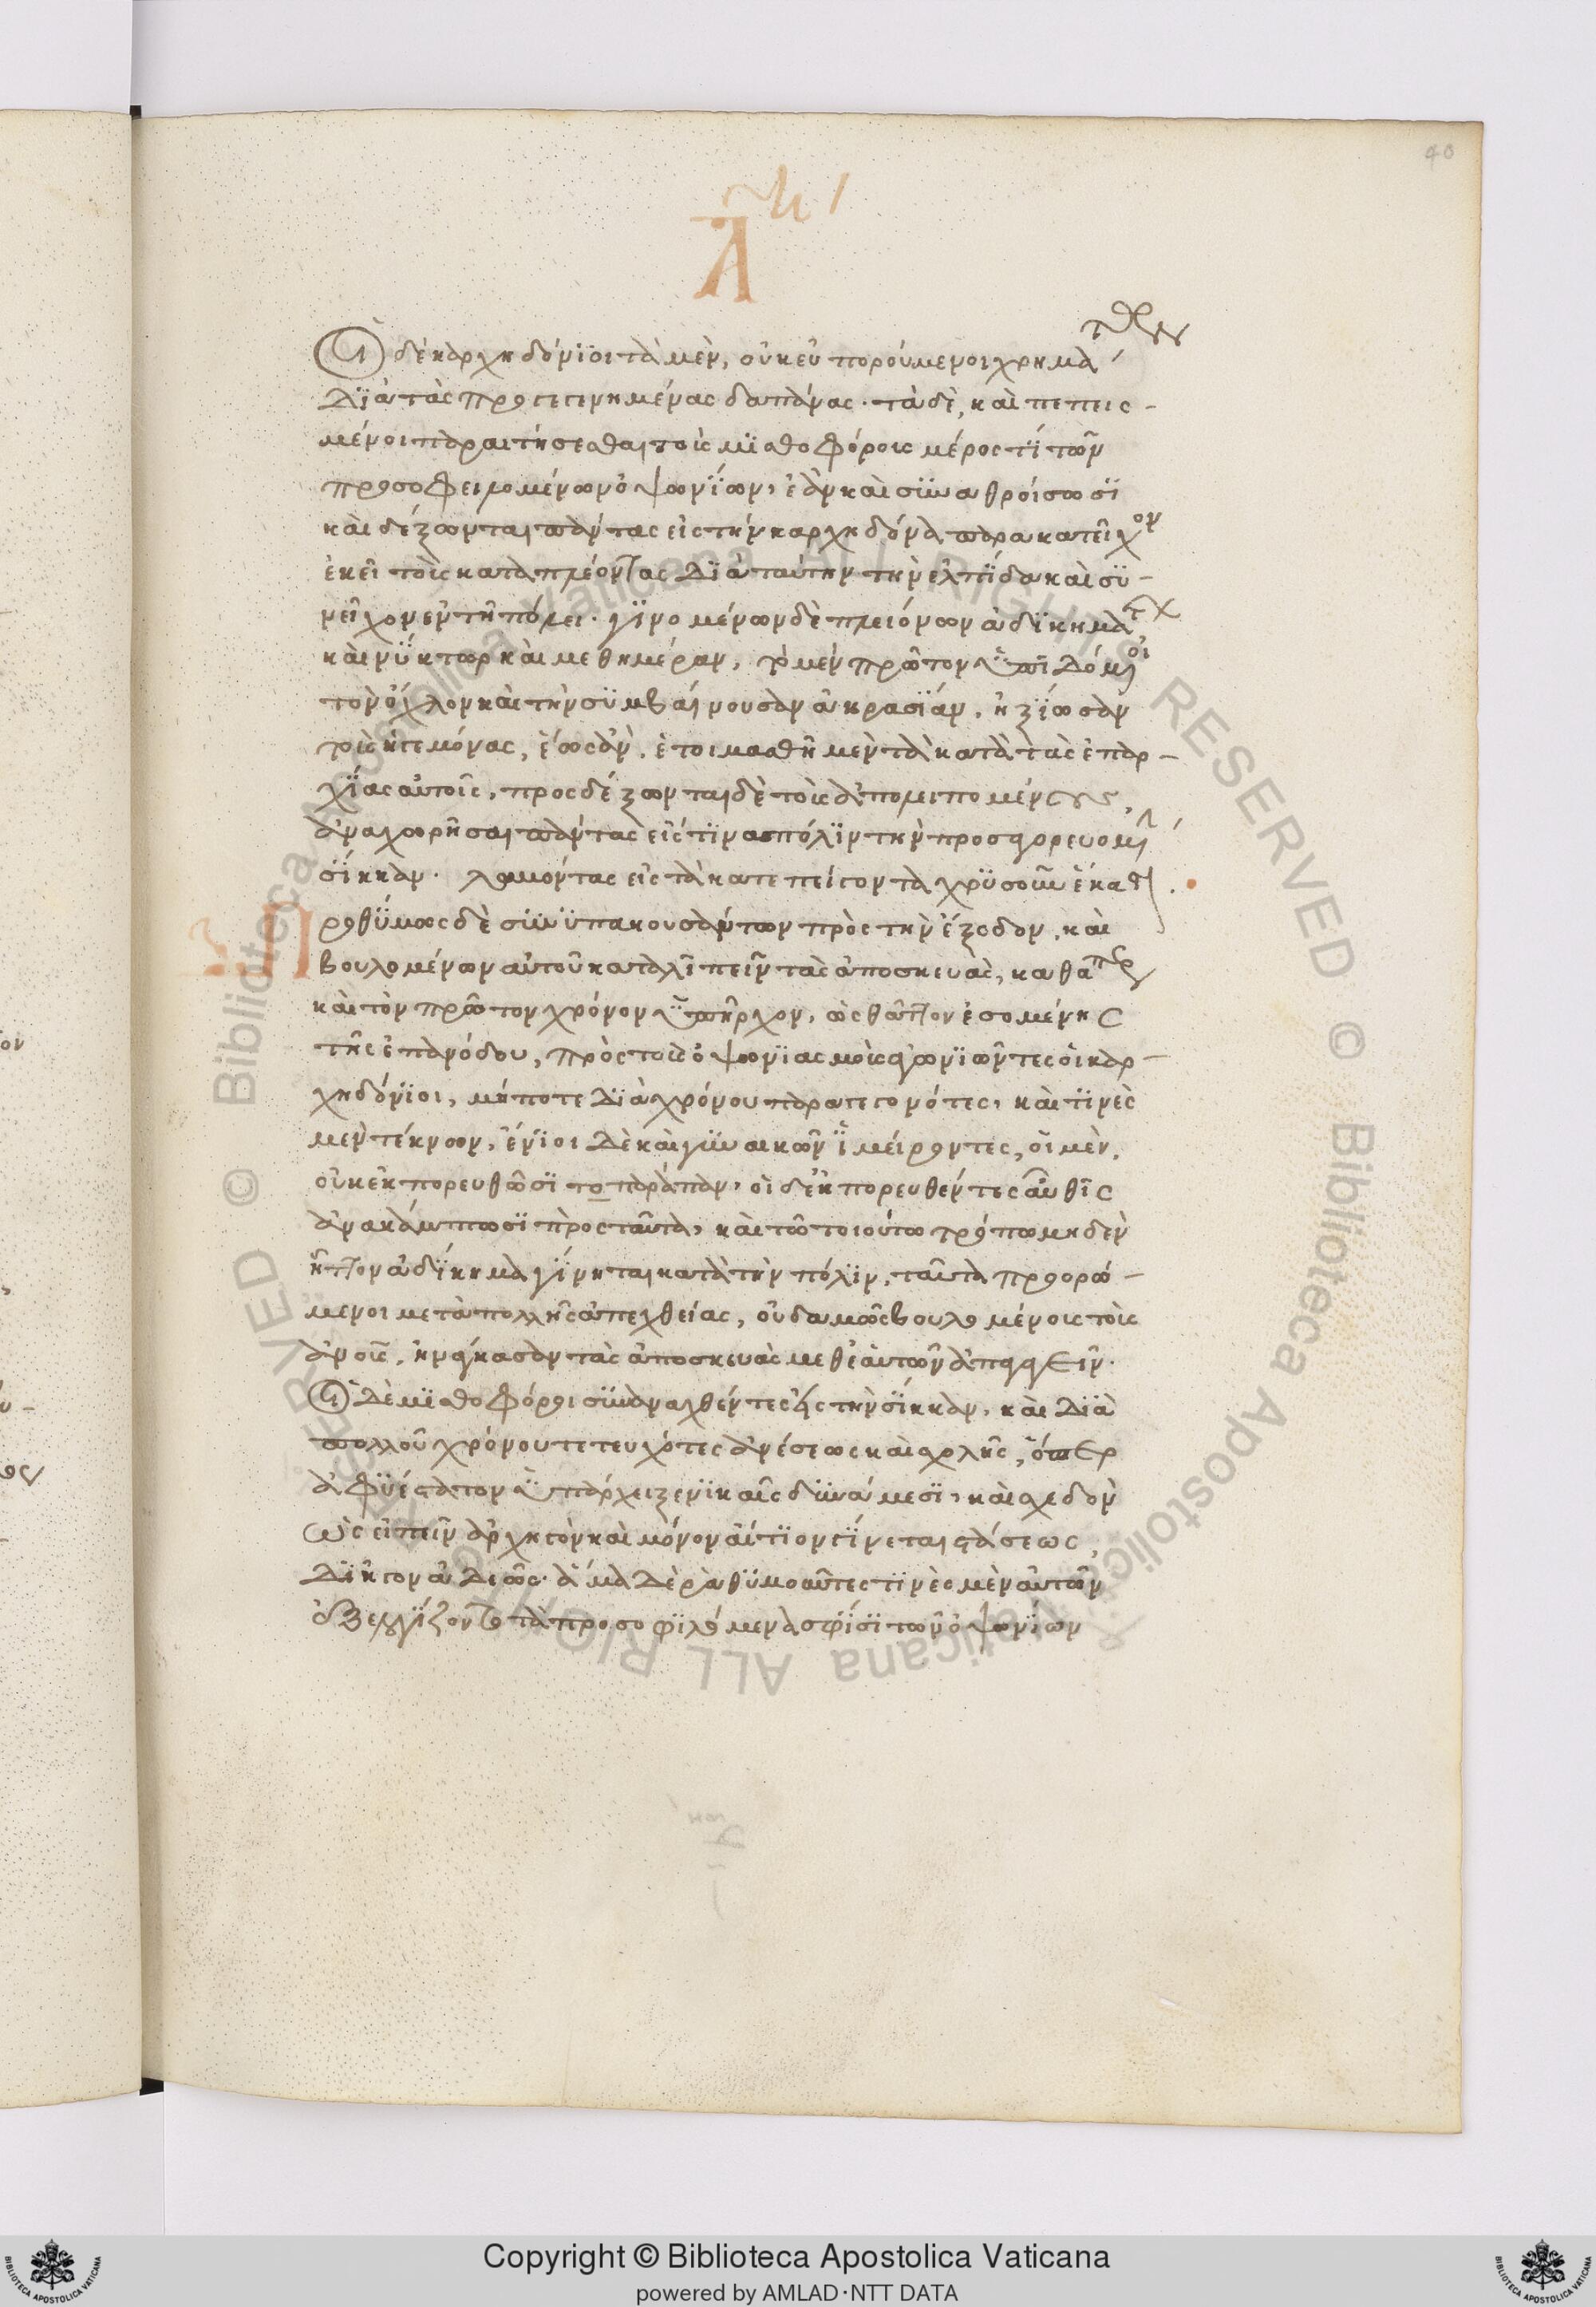 Α κ
Οἱ δὲ καρχηδόνϊοι τὰ μὲν, οὐκ εὐπορούμενοι χρημάτων
δϊὰ τὰς προγεγενημένας δαπάνας. τὰ δὲ, καὶ πεπεισ-
μένοι παραιτήσεσθαι τοὺς μϊσθοφόρους μέρος τϊ τῶν
προσοφειλομένων ὀψωνΐων, ἐὰν καὶ συναθροίσωσϊ
καὶ δέξωνται πάντας εἰς τὴν καρχηδόνα παρακατεῖχον
ἐκεῖ τοὺς καταπλέοντας δϊὰ ταύτην τὴν ἐλπΐδα καὶ συ-
νεῖχον ἐν τῆ πόλει. γϊνομένων δὲ πλειόνων ἀδϊκημάτων
καὶ νύκτωρ καὶ μεθημέραν, τὸ μὲν πρῶτον ὑπϊδόμενοι
τὸν ὄχλον καὶ τὴν συμβαίνουσαν ἀκρασΐαν, ἠξΐωσαν
τοὺς ἡγεμόνας, ἕως ἂν, ἑτοιμασθῆ μὲν τὰ κατὰ τὰς ἐπαρ-
χΐας αὐτοῖς, προσδέξωνται δὲ τοὺς ἀπολιπομένους,
ἀναχωρῆσαι πάντας εἴς τϊνα πόλϊν τὴν προσαγορευομένην
σΐκκαν. λαμόντας εἰς τὰ κατεπείγοντα χρυσοῦν ἕκαστον.
Προθύμως δὲ συνϋπακουσάντων πρὸς τὴν ἔξοδον, καὶ
βουλομένων αὐτοῦ καταλϊπεῖν τὰς ἀποσκευὰς, καθάπερ
καὶ τὸν πρῶτον χρόνον ὑπῆρχον, ὡς θᾶττον ἐσομένης
τῆς ἐπανόδου, πρὸς τοὺς ὀψωνϊασμοὺς ἀγωνϊῶντες οἱ καρ-
χηδόνϊοι, μήποτε δϊὰ χρόνου παραγεγονότες, καὶ τϊνὲς
μὲν τέκνων, ἔνϊοι δὲ καὶ γυναικῶν ἱμείροντες, οἱ μὲν,
οὐκ ἐκπορευθῶσϊ τὸ παράπαν, οἱ δ᾽ ἐκπορευθέντες αὖθϊς
ἀνακάμπωσϊ πρὸς ταῦτα, καὶ τῶ τοιούτω τρόπω μηδὲν
ἧττον ἀδΐκημα γΐνηται κατὰ τὴν πόλϊν, ταῦτα προορώ-
μενοι μετὰ πολλῆς ἀπεχθείας, οὐδαμῶς βουλομένους τοὺς
ἀνους, ἠνάγκασαν τὰς ἀποσκευὰς μεθ᾽ ἑαυτῶν ἀπαγαγεῖν.
Οἱ δὲ μϊσθοφόροι συναναχθέντες εἰς τὴν σΐκκαν, καὶ δϊὰ
πολλοῦ χρόνου τετευχότες ἀνέσεως καὶ σχολῆς, ὅπερ
ἀφυέστατον ὑπάρχει ξενϊκαῖς δυνάμεσϊ, καὶ σχεδὸν
ὡς εἰπεῖν ἀρχηγὸν καὶ μόνον αἴτϊον γΐνεται στάσεως,
δϊῆγον ἀδεῶς. ἅμα δὲ ῥαθυμοῦντες τϊνὲς μὲν αὐτῶν
ἐξελογΐζοντο τὰ προσοφϊλόμενα σφΐσϊ τῶν ὀψωνΐων
Copyright © Biblioteca Apostolica Vaticana
powered by AMLAD·NTT DATA